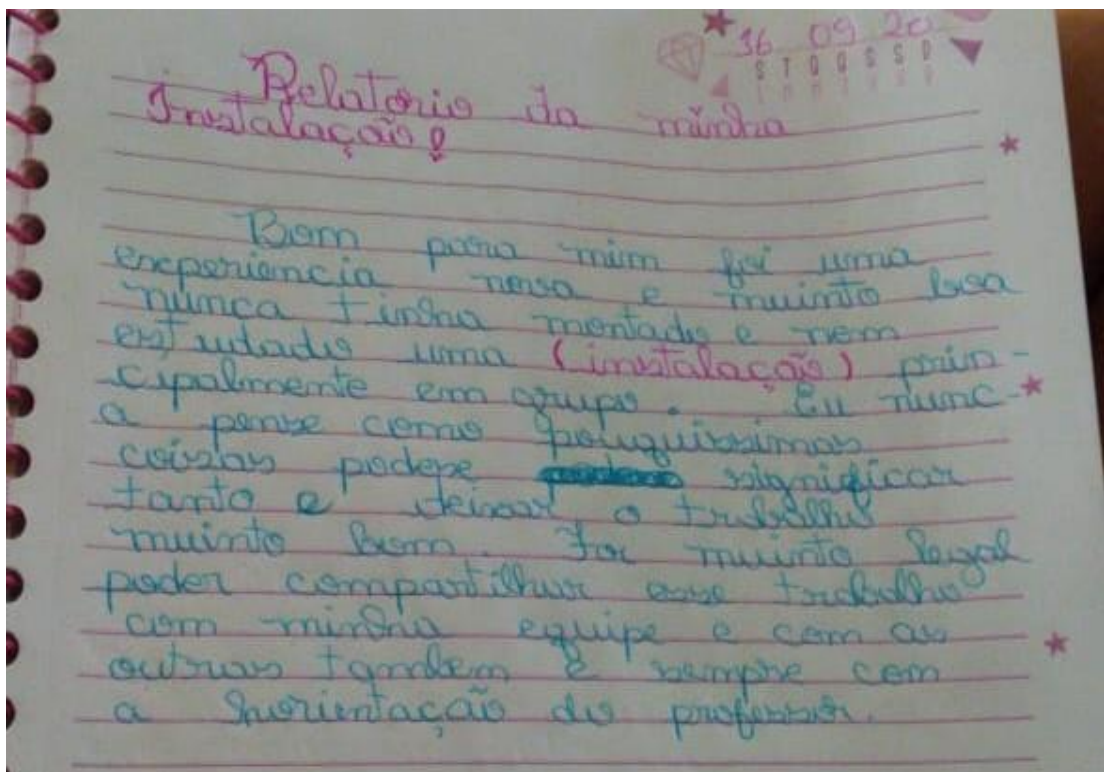 16 09 20
S T Q Q S S D
Relatorio da minha
Instalação!
Bom para mim foi uma
experiencia nova e muinto boa
nunca tinha montado e nem
estudado uma (instalação) prin-
cipalmente em grupo. Eu nunc-
a pense como pouquissimas
coisas podese significar
tanto e deixar o trabalho
muinto bom. Foi muinto legal
poder compartilhar esse trabalho
com minha equipe e com as
outras tambem e sempre com
a horientação do professor.